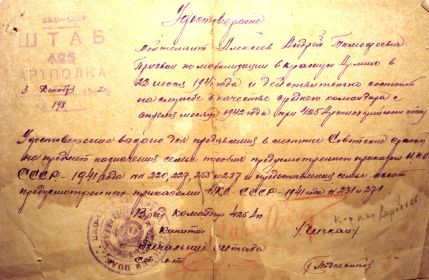 НКО-СССР
ШТАБ
425
АРТПОЛКА
3 Декабря 1942
198
Удостоверение
Лейтенант Алексеев Андрей Тимофеевич
Призван по мобилизации в Красную Армию в
22 июня 1941 года и действительно состоит
на службе в качестве среднего командира с
апреля месяца 1942 года при 425 Артиллерийском полку
Удостоверение выдано для предъявления в местные Советские органы
на предмет назначения семье пособия предусмотренного приказом НКО
СССР 1941 года № 220, 227, 265 и 287 и предоставления семье льгот
предусмотренных приказами НКО СССР 1941 года № 231 и 271
Врид командира 425 Ап
Капитан
Начальник штаба
Ст. л-т